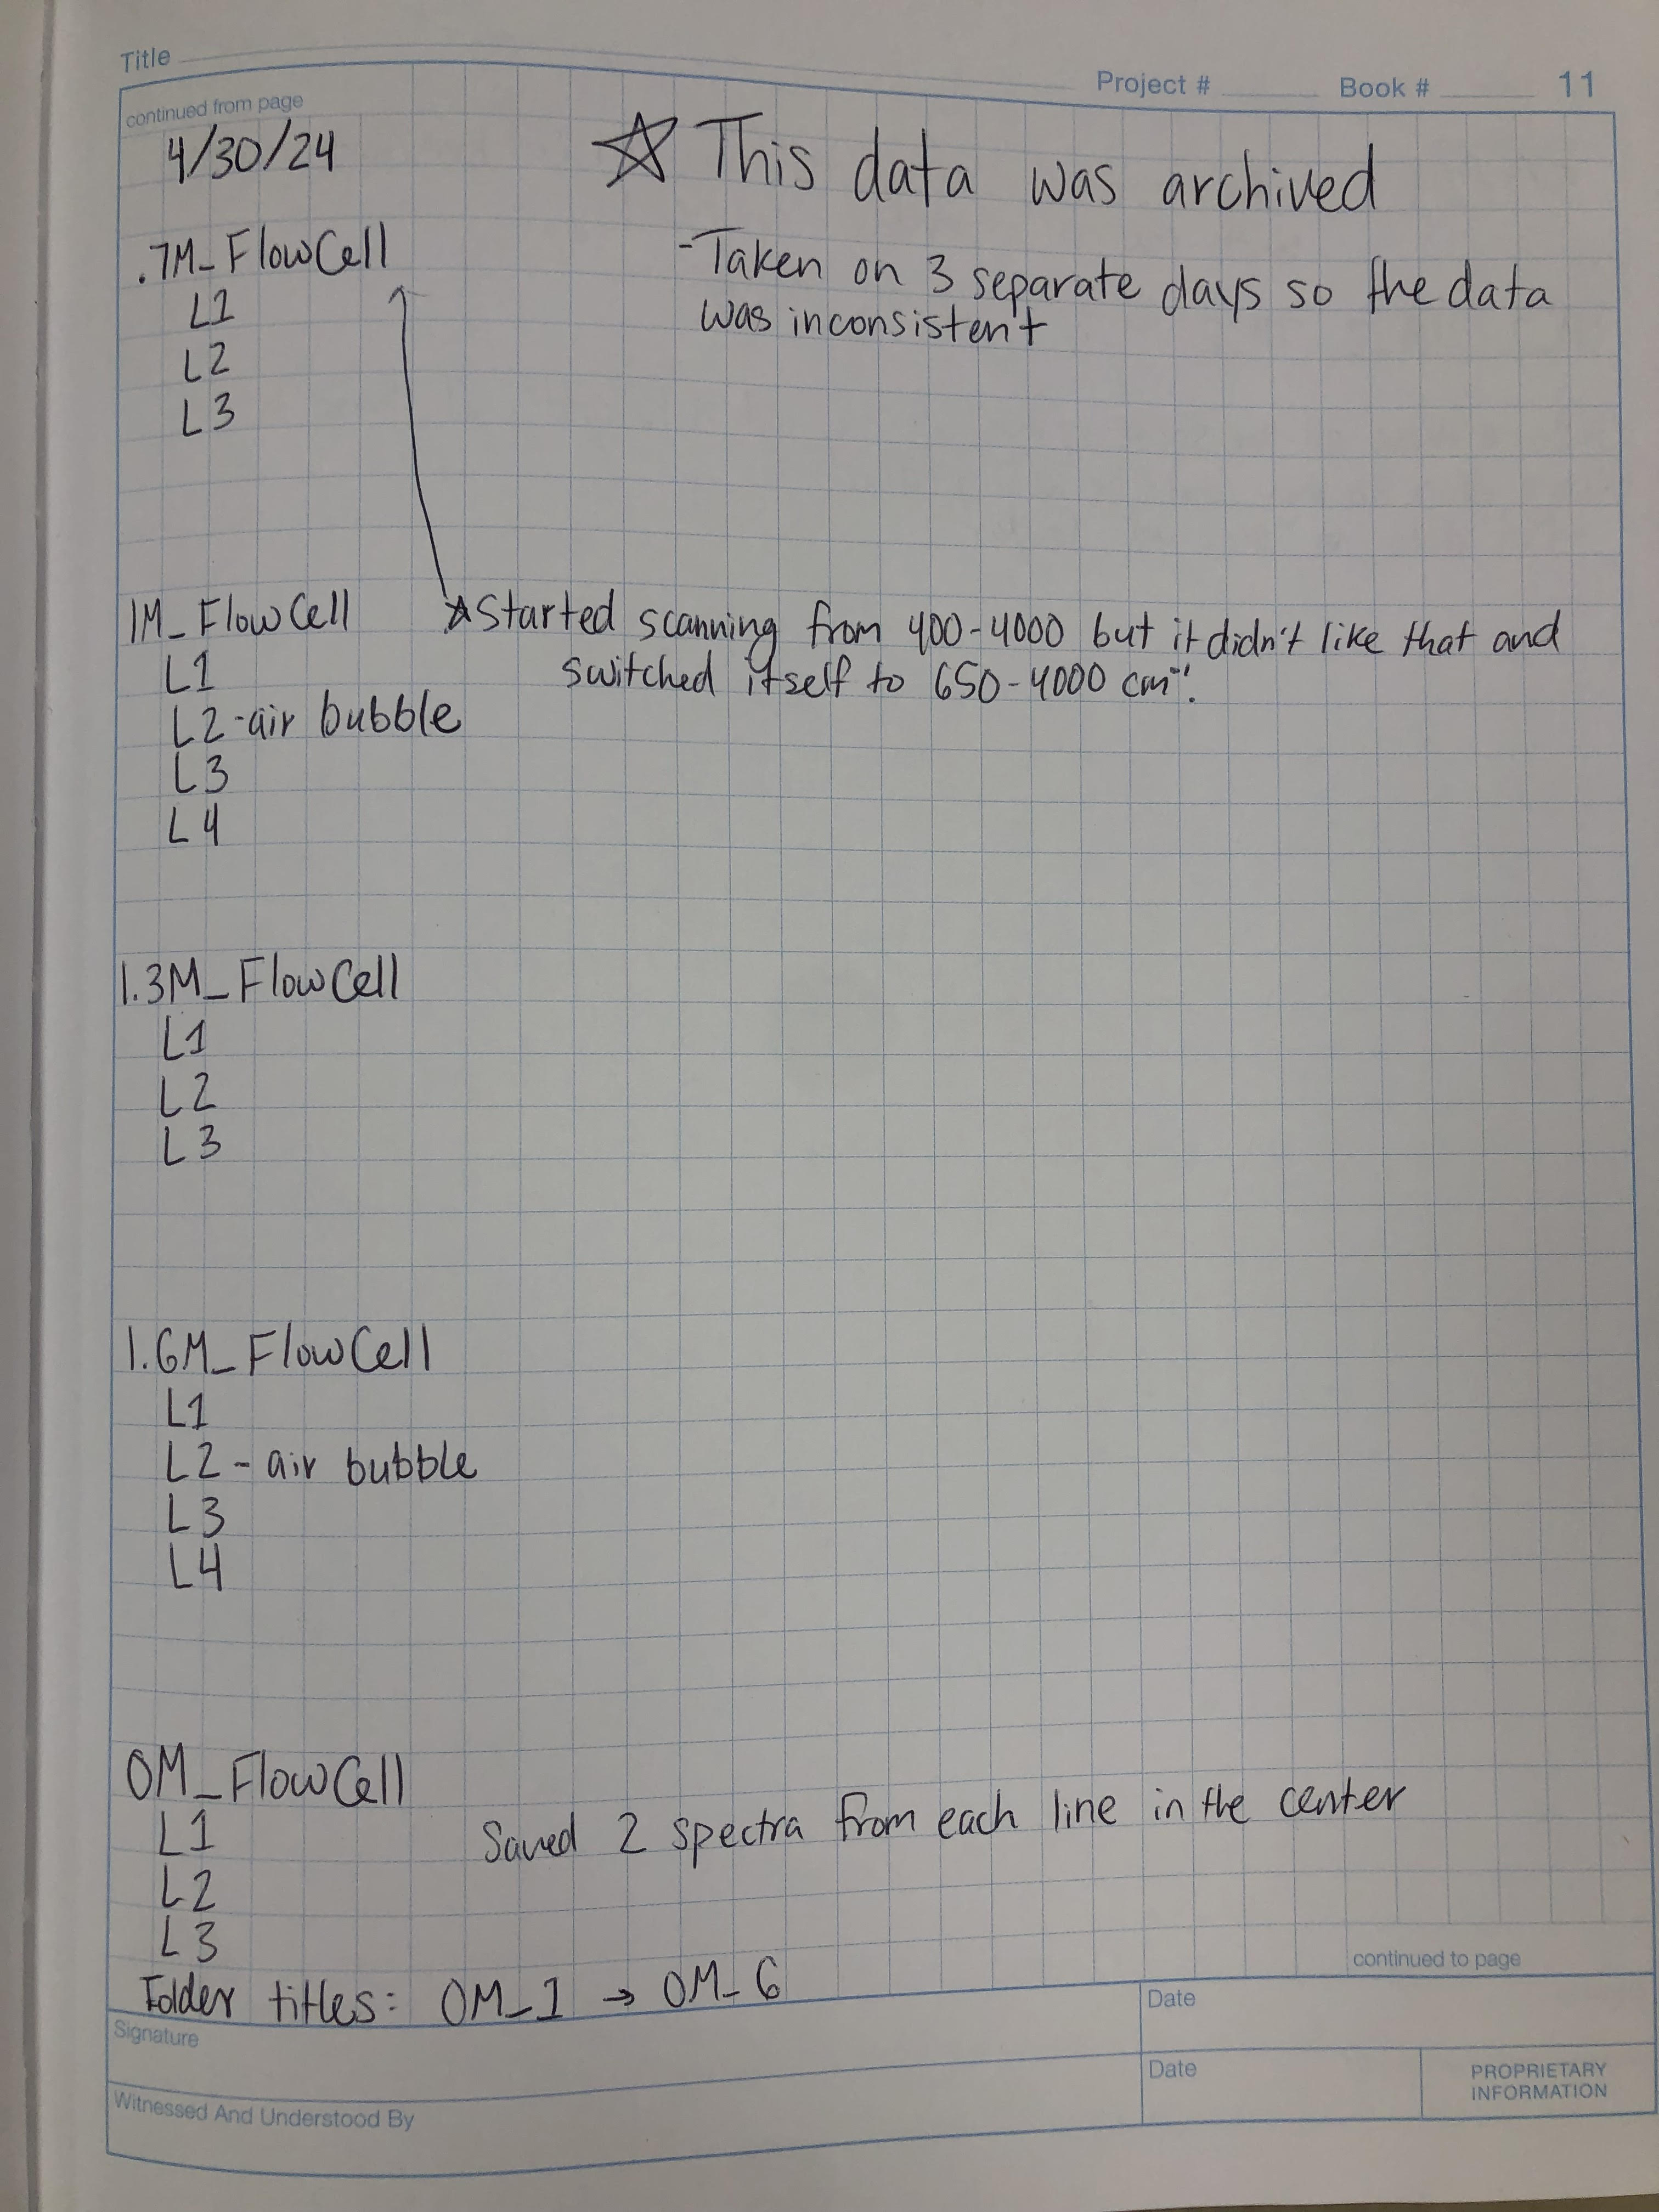 Title
Project # Book # 11
continued from page
4/30/24
☆ This data was archived
.7M_FlowCell
-Taken on 3 separate days so the data
was inconsistent
L1
L2
L3
1M_FlowCell
☆Started scanning from 400-4000 but it didn't like that and
switched itself to 650-4000 cm⁻¹.
L1
L2-air bubble
L3
L4
1.3M_FlowCell
L1
L2
L3
1.6M_FlowCell
L1
L2- air bubble
L3
L4
0M_FlowCell
Saved 2 spectra from each line in the center
L1
L2
L3
Folder titles: 0M_1 → 0M_6
continued to page
Signature
Date
Witnessed And Understood By
Date
PROPRIETARY
INFORMATION